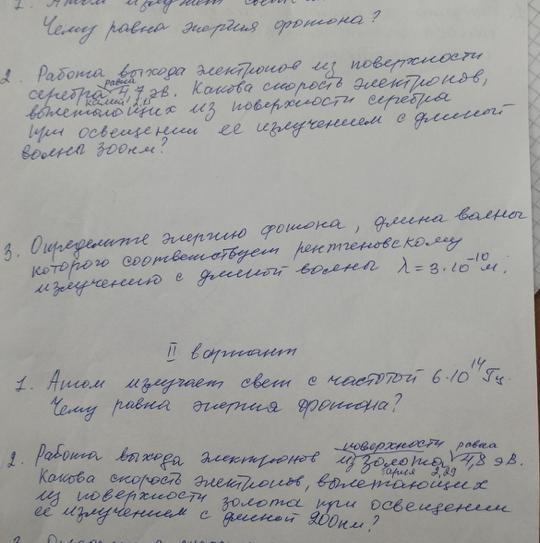 1. Атом излучает свет с
Чему равна энергия фотона?
2. Работа выхода электронов из поверхности
равна
серебра 4,7 эВ. Какова скорость электронов,
калий 2,15
вылетающих из поверхности серебра
при освещении ее излучением с длиной
волны 300нм?
3. Определите энергию фотона, длина волны
которого соответствует рентгеновскому
излучению с длиной волны λ = 3·10⁻¹⁰ м.
II вариант
1. Атом излучает свет с частотой 6·10¹⁴ Гц.
Чему равна энергия фотона?
поверхности равна
2. Работа выхода электронов из золота 4,8 эВ.
бария 2,29
Какова скорость электронов, вылетающих
из поверхности золота при освещении
ее излучением с длиной 200нм?
3.